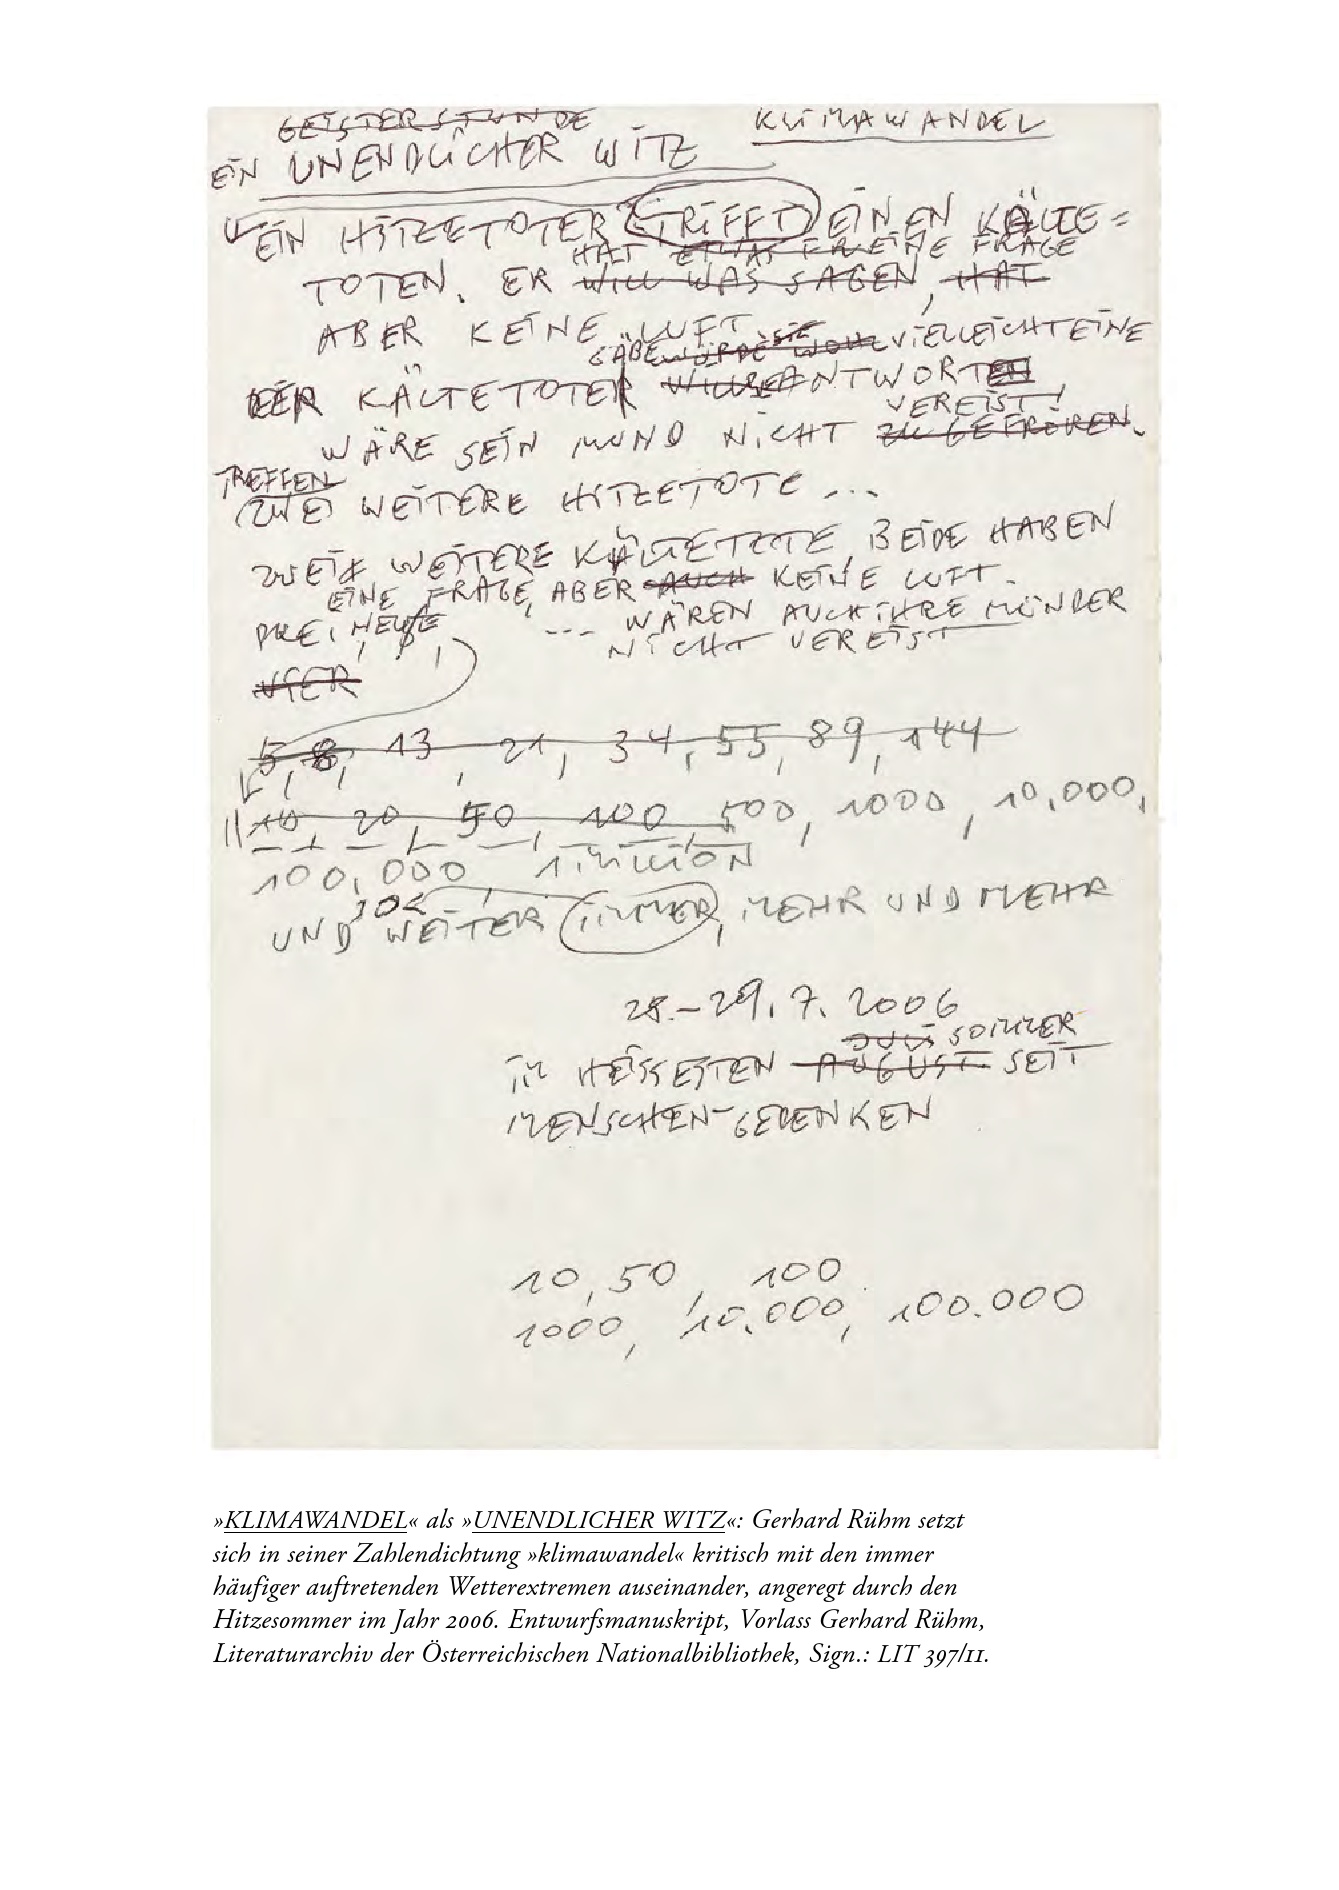 GEISTERSTUNDE
KLIMAWANDEL
EIN UNENDLICHER WITZ
EIN HITZETOTER TRIFFT EINEN KÄLTE=
HAT ETWAS EINE FRAGE
TOTEN. ER WILL WAS SAGEN, HAT
ABER KEINE LUFT
GÄBE WÜRDE SIE WOHL VIELLEICHT EINE
DER KÄLTETOTE ANTWORT
VEREIST!
WÄRE SEIN MUND NICHT ZUGEFROREN.
TREFFEN
ZWEI WEITERE HITZETOTE ...
ZWEI WEITERE KÄLTETOTE, BEIDE HABEN
EINE FRAGE, ABER AUCH KEINE LUFT.
DREI, ... WÄREN AUCH IHRE MÜNDER
NICHT VEREIST
VIER
5, 8, 13, 21, 34, 55, 89, 144
10, 20, 50, 100, 500, 1000, 10.000,
100.000, 1 MILLION
UND WEITER IMMER, MEHR UND MEHR
28.–29.7.2006
JULI SOMMER
IM HEISSESTEN AUGUST SEIT
MENSCHEN-GEDENKEN
10, 50, 100
1000, 10.000, 100.000
»KLIMAWANDEL« als »UNENDLICHER WITZ«: Gerhard Rühm setzt
sich in seiner Zahlendichtung »klimawandel« kritisch mit den immer
häufiger auftretenden Wetterextremen auseinander, angeregt durch den
Hitzesommer im Jahr 2006. Entwurfsmanuskript, Vorlass Gerhard Rühm,
Literaturarchiv der Österreichischen Nationalbibliothek, Sign.: LIT 397/11.